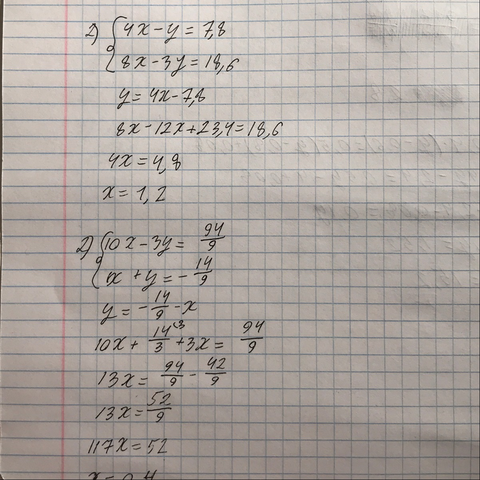 1) { 4x - y = 7,8
8x - 3y = 18,6
y = 4x - 7,8
8x - 12x + 23,4 = 18,6
4x = 4,8
x = 1,2
2) { 10x - 3y = 94/9
x + y = - 14/9
y = - 14/9 - x
10x + 14/3 + 3x = 94/9
13x = 94/9 - 42/9
13x = 52/9
117x = 52